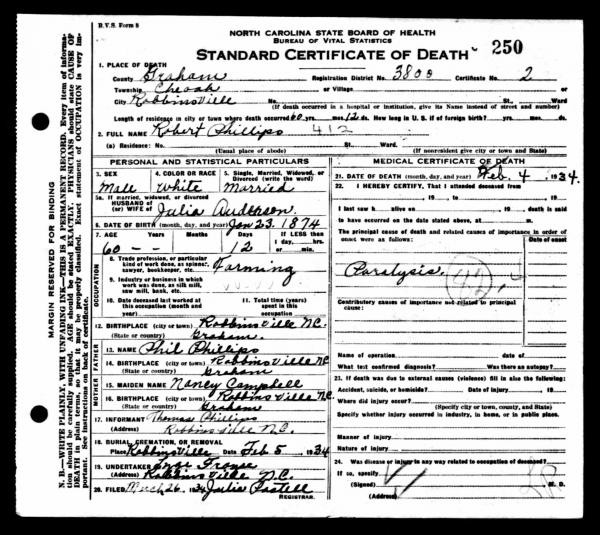 B.V.S. Form 8
NORTH CAROLINA STATE BOARD OF HEALTH
BUREAU OF VITAL STATISTICS
STANDARD CERTIFICATE OF DEATH 250
1. PLACE OF DEATH
County Graham Registration District No. 3800 Certificate No. 2
Township Cheoah or Village
City Robbinsville No. St., Ward
(If death occurred in a hospital or institution, give its Name instead of street and number)
Length of residence in city or town where death occurred 60 yrs. mos. 12 ds. How long in U.S. if of foreign birth? yrs. mos. ds.
2. FULL NAME Robert Phillips 412
(a) Residence: No. St. Ward.
(Usual place of abode) (If nonresident give city or town and State)
PERSONAL AND STATISTICAL PARTICULARS
3. SEX 4. COLOR OR RACE 5. Single, Married, Widowed, or Divorced (write the word)
Male White Married
5a. If married, widowed, or divorced
HUSBAND of
(or) WIFE of Julia Auderson
6. DATE OF BIRTH (month, day, and year) Jan 23. 1874
7. AGE Years Months Days If LESS than 1 day, hrs. or min.
60 -- 12
OCCUPATION
8. Trade, profession, or particular kind of work done, as spinner, sawyer, bookkeeper, etc. Farming
9. Industry or business in which work was done, as silk mill, saw mill, bank, etc.
10. Date deceased last worked at this occupation (month and year)
11. Total time (years) spent in this occupation
12. BIRTHPLACE (city or town) Robbinsville N.C.
(State or country) Graham
FATHER
13. NAME Phil Phillips
14. BIRTHPLACE (city or town) Robbinsville N.C.
(State or country) Graham
MOTHER
15. MAIDEN NAME Nancy Campbell
16. BIRTHPLACE (city or town) Robbinsville N.C.
(State or country) Graham
17. INFORMANT Thomas Phillips
(Address) Robbinsville N.C.
18. BURIAL, CREMATION, OR REMOVAL
Place Robbinsville Date Feb 5, 1934
19. UNDERTAKER
(Address) Robbinsville N.C.
20. FILED March 26, 1934 Julia
REGISTRAR.
MEDICAL CERTIFICATE OF DEATH
21. DATE OF DEATH (month, day, and year) Feb. 4, 1934.
22. I HEREBY CERTIFY, That I attended deceased from
, 19 , to , 19
I last saw h alive on , 19 , death is said
to have occurred on the date stated above, at m.
The principal cause of death and related causes of importance in order of onset were as follows:
Date of onset
Paralysis.
Contributory causes of importance not related to principal cause:
Name of operation Date of
What test confirmed diagnosis? Was there an autopsy?
23. If death was due to external causes (violence) fill in also the following:
Accident, suicide, or homicide? Date of injury , 19
Where did injury occur?
(Specify city or town, county, and State)
Specify whether injury occurred in industry, in home, or in public place.
Manner of injury
Nature of injury
24. Was disease or injury in any way related to occupation of deceased?
If so, specify
(Signed) M. D.
(Address)
MARGIN RESERVED FOR BINDING
N. B.—WRITE PLAINLY, WITH UNFADING INK—THIS IS A PERMANENT RECORD. Every item of information should be carefully supplied. AGE should be stated EXACTLY. PHYSICIANS should state CAUSE OF DEATH in plain terms, so that it may be properly classified. Exact statement of OCCUPATION is very important. See instructions on back of certificate.